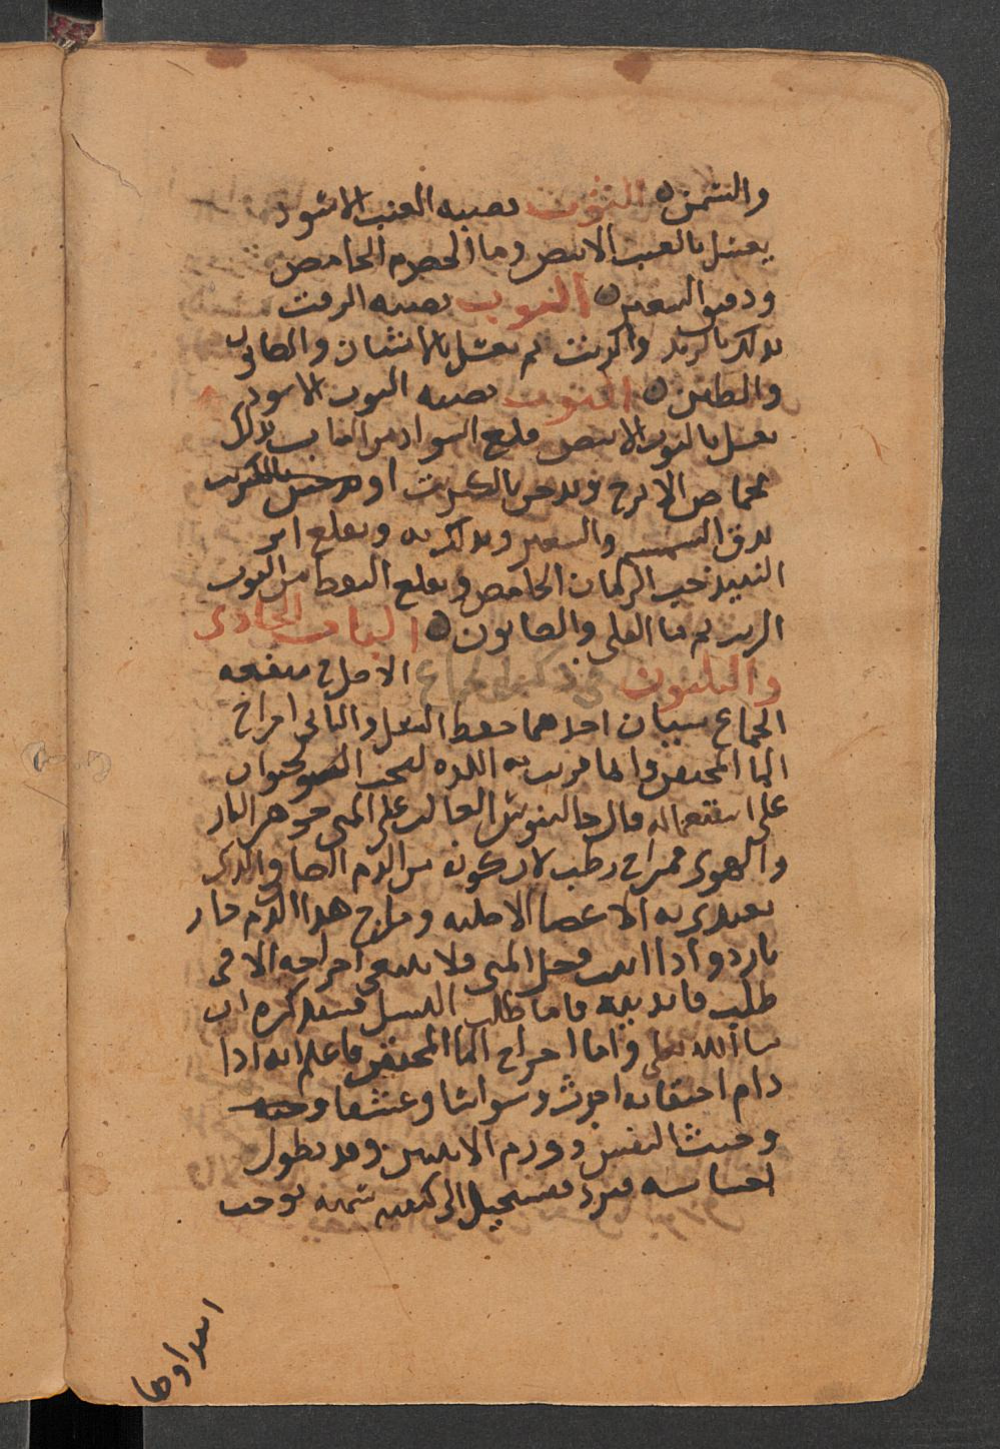 والشمس ٥ الثوب يصيبه العنب الاسود
يغسل بالعنب الابيض وما الحصرم الحامض
ودقيق الشعير ٥ الثوب يصيبه الزفت
يدلك بالزيد والزيت ثم يغسل بالاشنان والصابون
والطين ٥ الثوب يصيبه التوت الاسود
يغسل بالتوت الابيض قلع السواد من الثياب يدلك
بحماض الاترج ويدخن بالكبريت او
يدق السمسم والشعير ويدلك به ويقلع اثر
النبيذ حب الرمان الحامض ويقلع النفط من الثوب
الزيت ثم ما القلى والصابون ٥ الباب الحادى
والثلثون فى ذكر الجماع الاصلاح منفعه
الجماع سببان احدهما حفظ النسل والثانى اخراج
الما المحتقن وانما قرنت به اللذه ليحث الحيوان
على استعماله قال جالينوس الغالب على المنى جوهر النار
والهوى مزاج رطب لانه يكون من الدم الصافى الذى
تغتدى به الاعضا الاصليه ومزاج هذا الدم حار
واذا فضل المنى فلا ينبغى اخراجه الا فى
طلب فاما طلب النسل فسنذكره ان
شا الله تعلى واما اخراج الما المحتقن فاعلم انه اذا
دام احتقانه احدث وسواسا وعشقا
وخبث النفس وورم الانثيين وقد يطول
احتباسه فيبرد فيستحيل الى كيفيه سميه توجب
امراضا